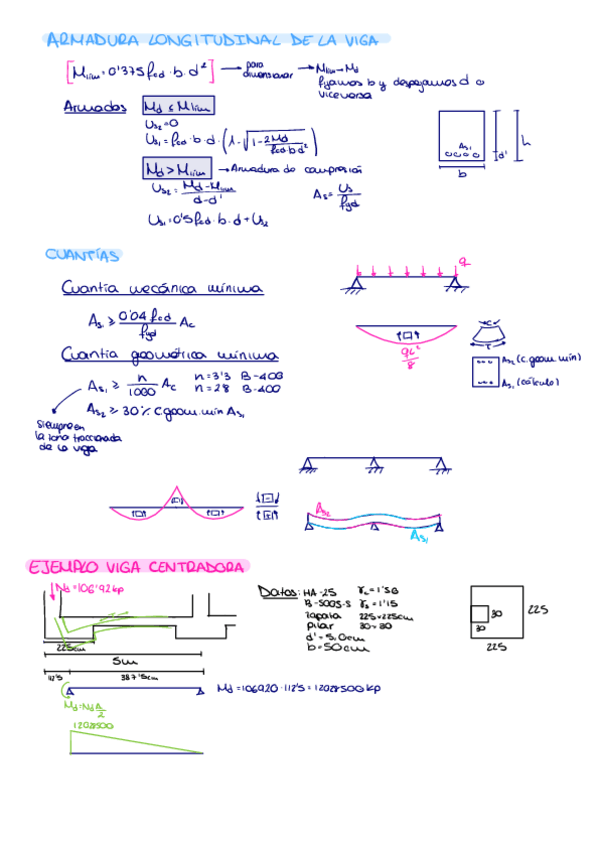 ARMADURA LONGITUDINAL DE LA VIGA
[Mlím=0'375fcd·b·d²] → para dimensionar → Mlím→Md
fijamos b y despejamos d o viceversa
Armados Md ≤ Mlím
Us2=0
Us1=fcd·b·d·(1-√(1-2Md/fcd·b·d²))
Md>Mlím → Armadura de compresión
Us2=Md-Mlím/d-d'
As=Us/fyd
Us1=0'5fcd·b·d+Us2
As1
d'
h
b
CUANTÍAS
Cuantía mecánica mínima
As1 ≥ 0'04fcd/fyd Ac
Cuantía geométrica mínima
As1 ≥ n/1000 Ac n=3'3 B-400
n=2'8 B-400
As2 ≥ 30% C.geom.mín As1
siempre en
la zona traccionada
de la viga
q
qL²/8
C
T
As2 (c.geom mín)
As1 (cálculo)
As2
As1
EJEMPLO VIGA CENTRADORA
Nd=106'92kp
225cm
5m
112'5
387'5cm
Md=Nd·a/2
12028500
Md=106920·112'5=12028500kp
Datos: HA-25 γc=1'50
B-500S-S γs=1'15
zapata 225×225cm
pilar 30×30
d'=5,0cm
b=50cm
30
30
225
225